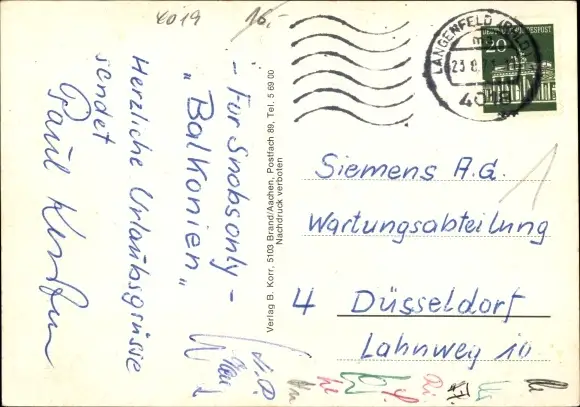 4019
16.-
- Für Snobs only -
"Balkonien"
Herzliche Urlaubsgrüsse
sendet
Paul
Verlag B. Korr, 5103 Brand/Aachen, Postfach 89, Tel. 5 69 00
Nachdruck verboten
LANGENFELD
4018
DEUTSCHE BUNDESPOST
20
Siemens A.G.
Wartungsabteilung
4 Düsseldorf
Lahnweg 10
1